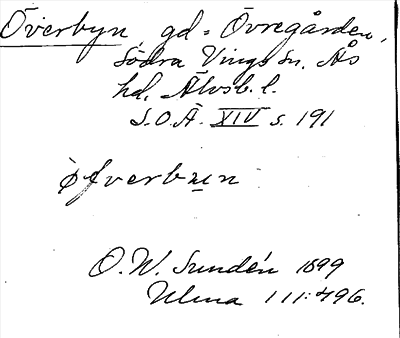 Överbyn, gd = Övregården,
Södra Vings sn. Ås
hd, Älvsb. l.
S.O.Ä. XIV s. 191
öfverbyn
O.W. Sundén 1899
Ulma 111:496.